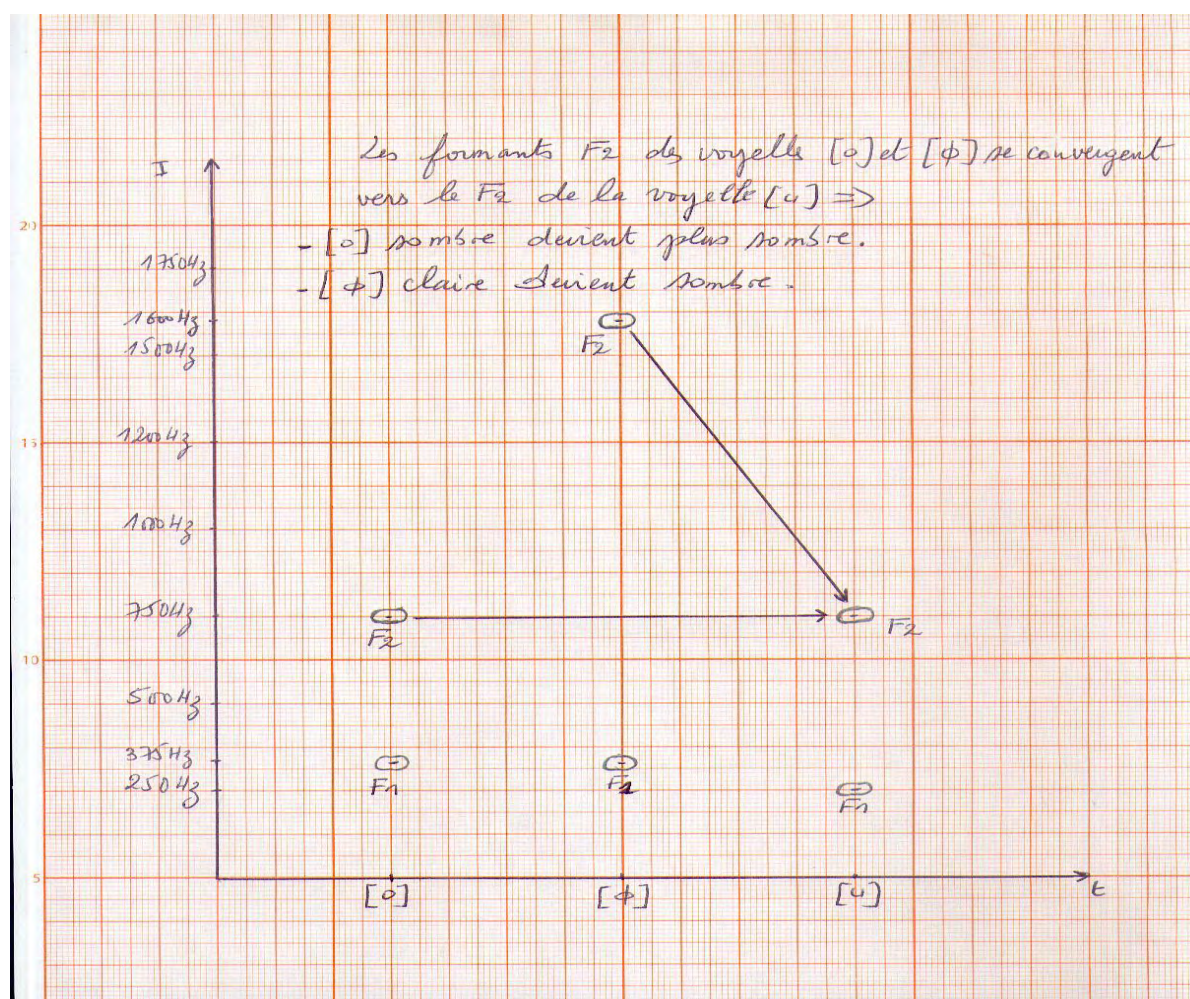 Les formants F2 des voyelle [o] et [ɸ] se convergent
vers le F2 de la voyelle [u] =>
- [o] sombre devient plus sombre.
- [ɸ] claire devient sombre.
I
20
1750Hz
1600Hz
F2
1500Hz
15
1200Hz
1000Hz
750Hz
F2
F2
10
500Hz
375Hz
250Hz
F1
F1
F1
5
[o]
[ɸ]
[u]
t